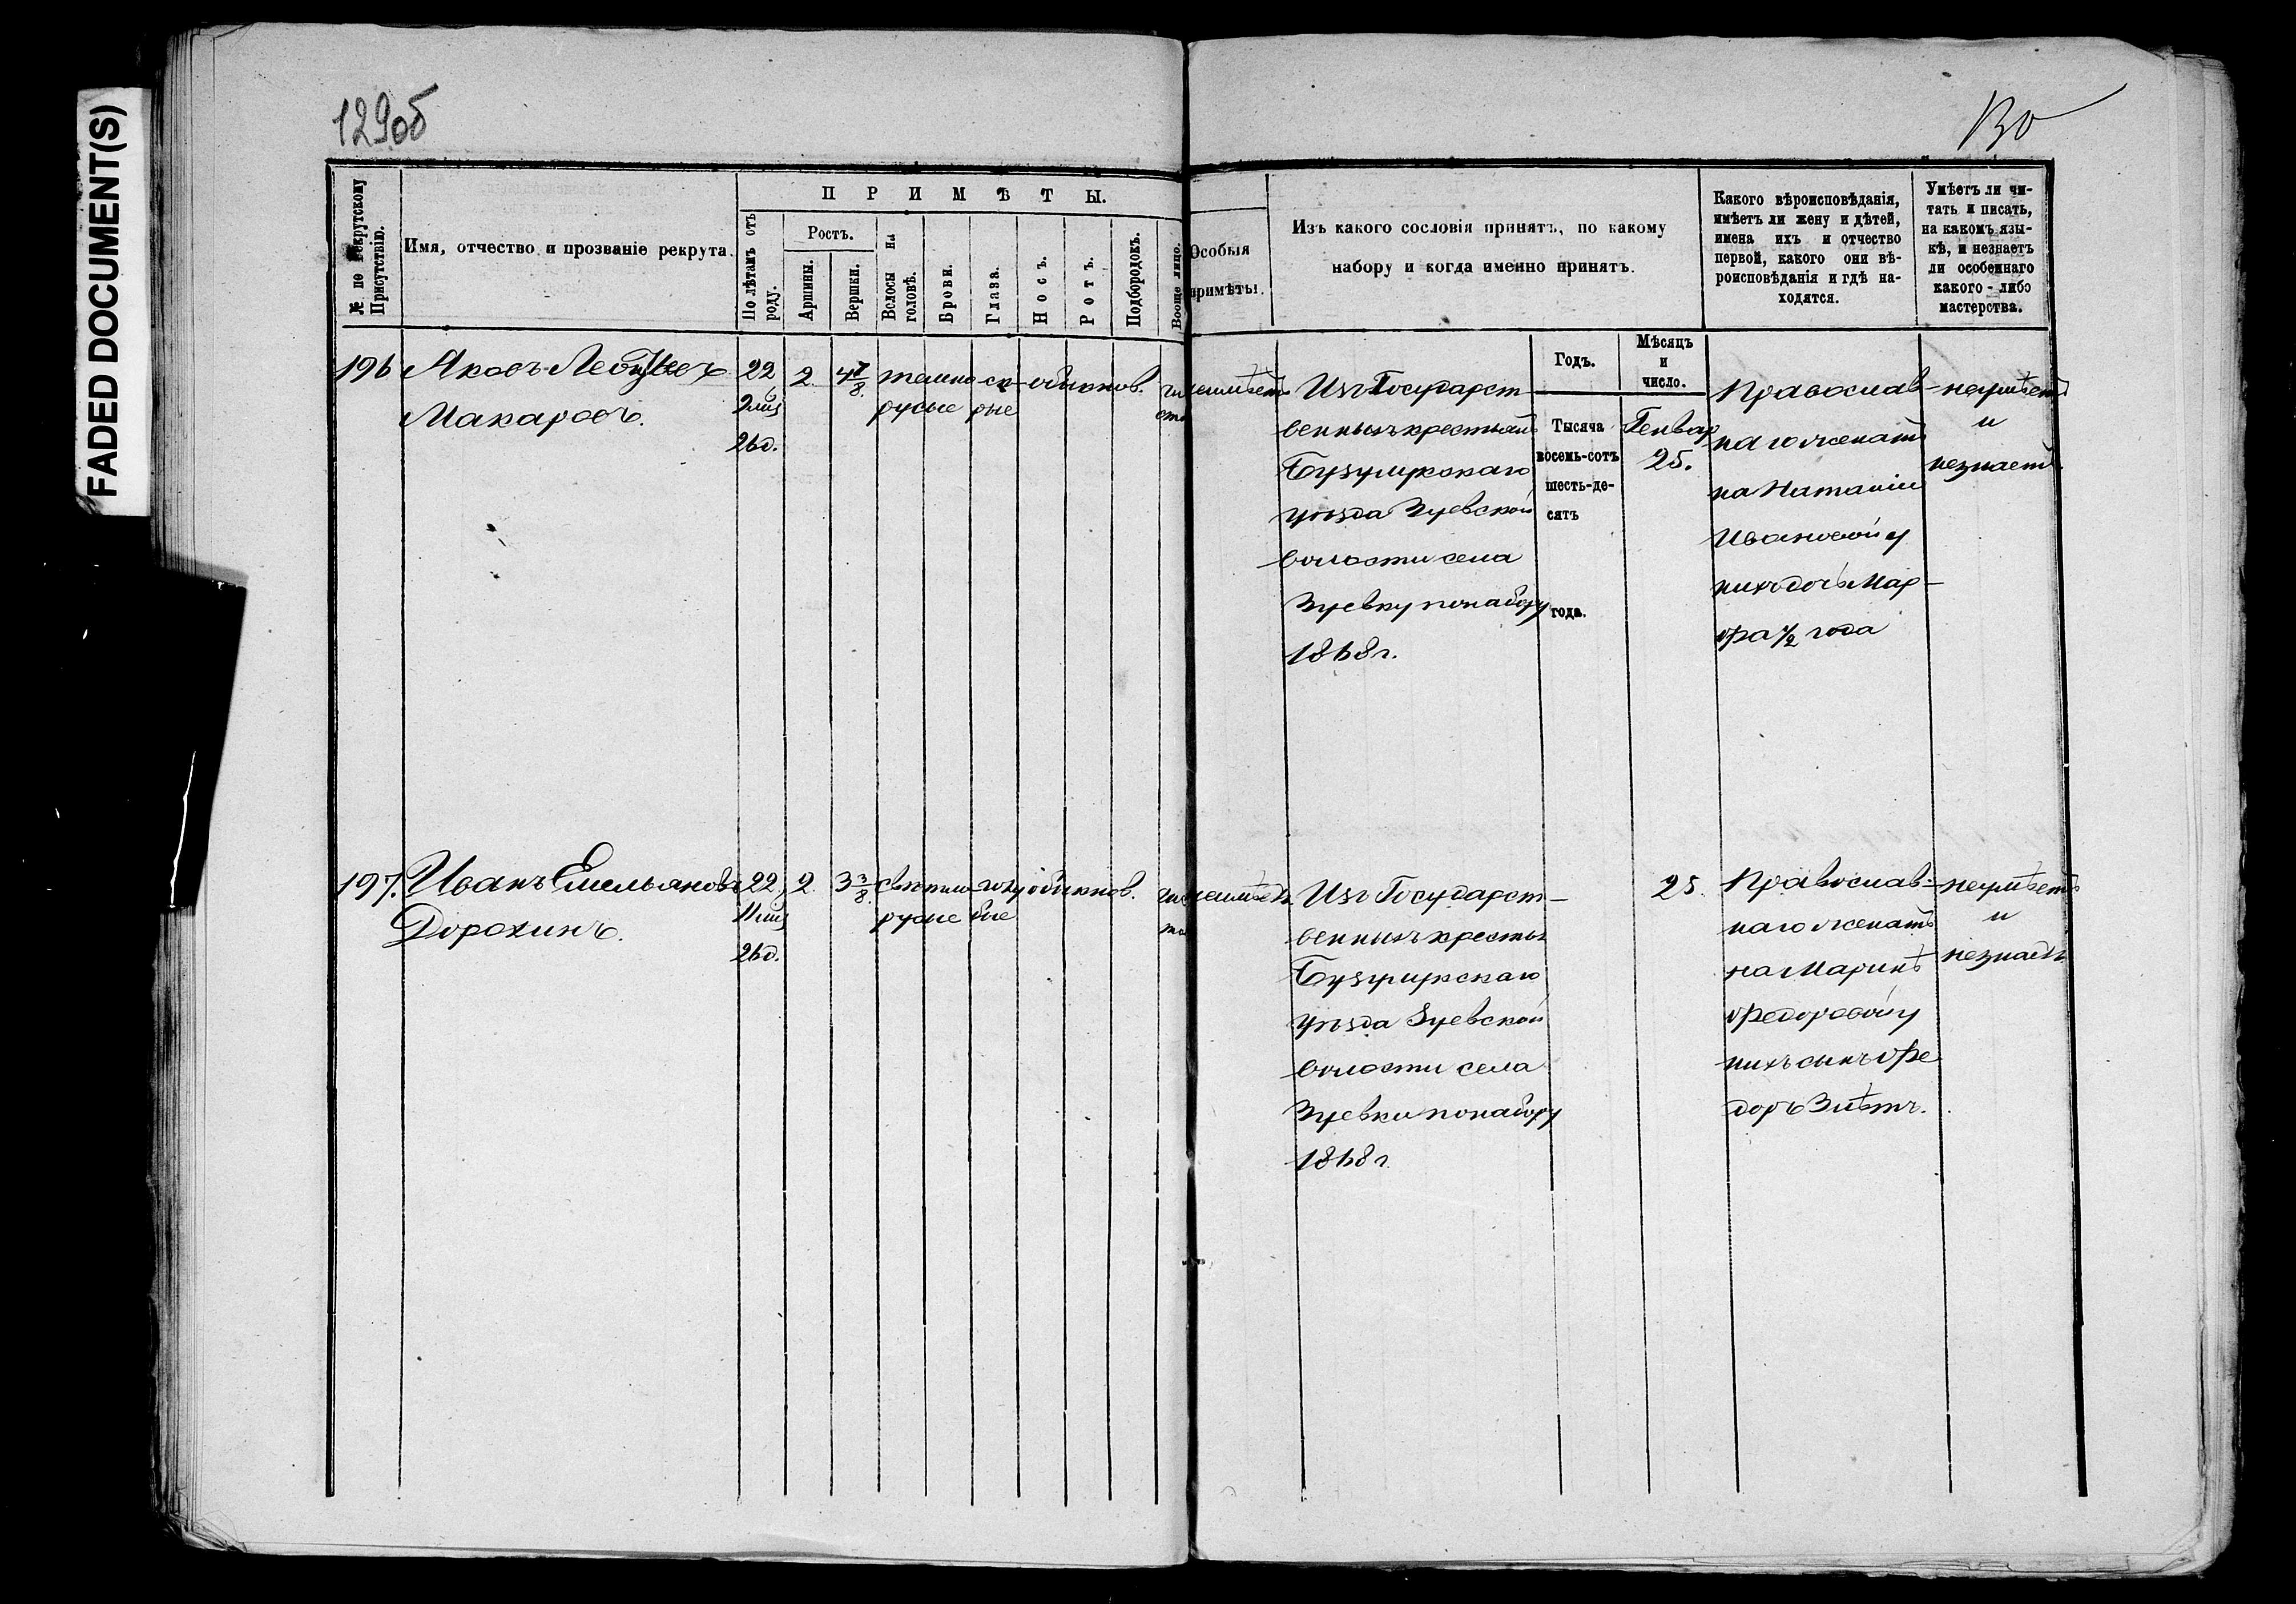 FADED DOCUMENT(S)
129об
130
№ по Рекрутскому Присутствію.
Имя, отчество и прозваніе рекрута.
ПРИМѢТЫ.
По лѣтамъ отъ роду.
Ростъ.
Аршины.
Вершки.
Волосы на головѣ.
Брови.
Глаза.
Носъ.
Ротъ.
Подбородокъ.
Вообще лицо.
Особыя
примѣты.
Изъ какого сословія принятъ, по какому
набору и когда именно принятъ.
Какого вѣроисповѣданія,
имѣетъ ли жену и дѣтей,
имена ихъ и отчество
первой, какого они вѣ-
роисповѣданія и гдѣ на-
ходятся.
Умѣетъ ли чи-
тать и писать,
на какомъ язы-
кѣ, и незнаетъ
ли особеннаго
какого-либо
мастерства.
Годъ.
Мѣсяцъ
и
число.
Тысяча
восемь-сотъ
шесть-де-
сятъ
года.
196
Яковъ
Макаровъ.
22
2 мц
26 д.
2.
4 7/8.
темно
русые
сѣ-
рые
обыкнов.
чи
сто
неимѣетъ
Изъ Государст
венныхъ крестьянъ
Бузулукскаго
уѣзда Зуевской
волости села
Зуевку понабору
1868 г.
Генвар
25.
Православ-
наго женатъ
на Наталіи
Ивановой у
нихъ дочь Мар-
фа 1/2 года
неумѣетъ
и
незнаетъ.
197.
Иванъ Емельяновъ
Дорохинъ.
22
11 мц
26 д.
2
3 3/8.
свѣтло-
русые
голу
бые
обыкнов.
чис
то
неимѣетъ.
Изъ Государст-
венныхъ крестьян
Бузулукскаго
уѣзда Зуевской
волости села
Зуевки понабору
1868 г.
25.
Православ-
наго женатъ
на Маринѣ
Федоровой у
нихъ сынъ Фе
доръ 3 лѣтъ.
неумѣетъ
и
незнаетъ